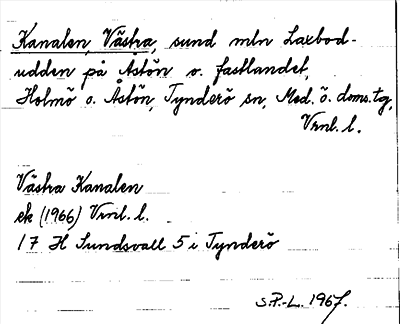 Kanalen, Västra, sund mln Laxbod-
udden på Åstön o. fastlandet,
Holmö o. Åstön, Tynderö sn, Med. ö. doms.tg,
Vrnl. l.
Västra Kanalen
ek (1966) Vrnl. l.
17 H Sundsvall 5 i Tynderö
S.P.-L. 1967.